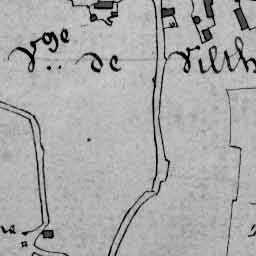 Vge de Vilth